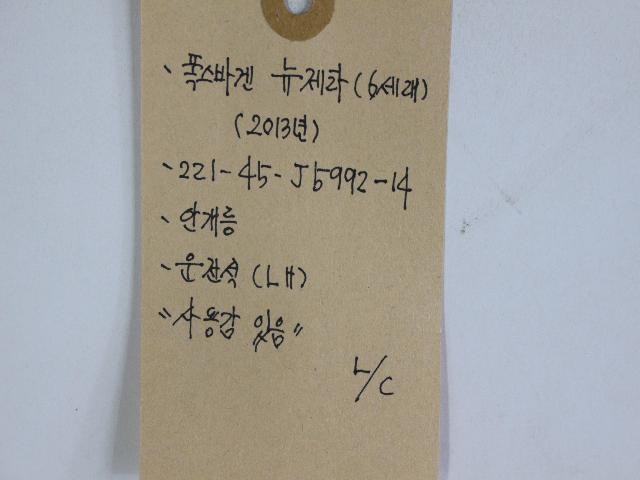 、폭스바겐 뉴제타 (6세대)
(2013년)
、221-45-J5992-14
、안개등
、운전석 (LH)
"사용감 있음"
L/C